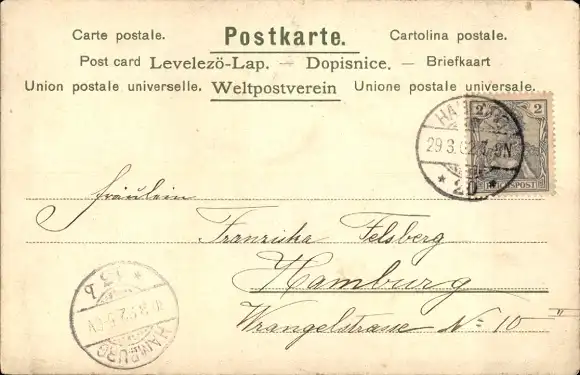 Carte postale. Postkarte. Cartolina postale.
Post card Levelező-Lap. — Dopisnice. — Briefkaart
Union postale universelle. Weltpostverein Unione postale universale.
2 2
REICHSPOST
HAMBURG
29.3.02
* 20 *
Fräulein
Franziska Felsberg
Hamburg
Wrangelstrasse No 10 II
HAMBURG